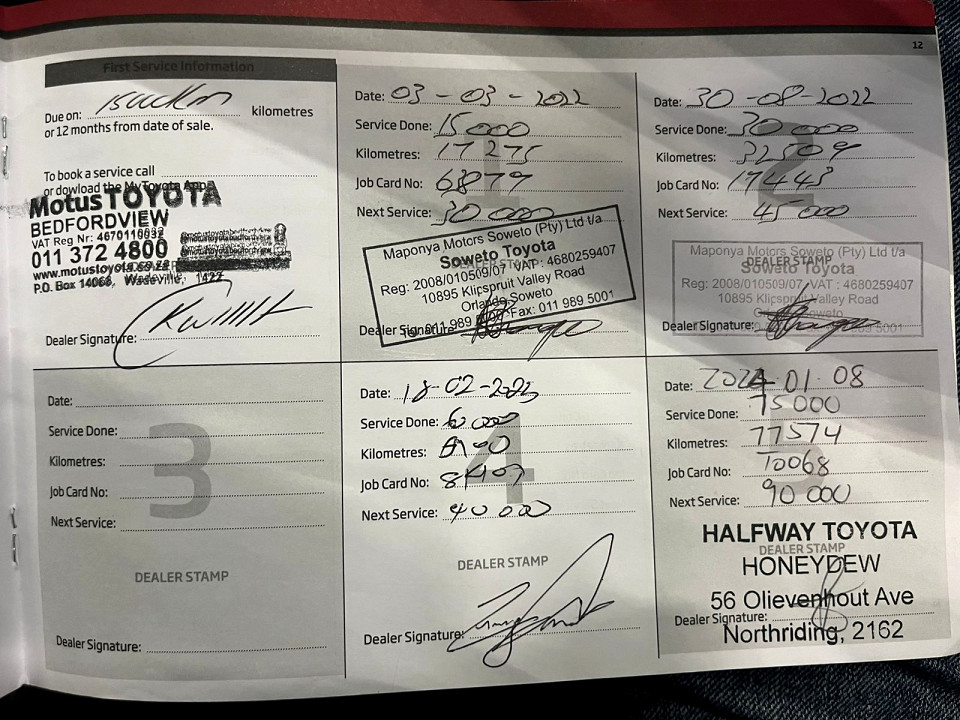 12
First Service Information
Due on: 15000km kilometres
or 12 months from date of sale.
To book a service call
or dowload the MyToyota App
Motus TOYOTA
BEDFORDVIEW
VAT Reg Nr: 4670110932
011 372 4800
www.motustoyota.co.za
P.O. Box 14066, Wadeville, 1422
Dealer Signature:
Date: 03-03-2022
Service Done: 15000
Kilometres: 17275
Job Card No: 6879
Next Service: 30000
Maponya Motors Soweto (Pty) Ltd t/a
Soweto Toyota
Reg: 2008/010509/07 VAT: 4680259407
10895 Klipspruit Valley Road
Orlando Soweto
Tel: 011 989 Fax: 011 989 5001
Dealer Signature:
1
Date: 30-08-2022
Service Done: 30000
Kilometres: 32509
Job Card No: 17443
Next Service: 45000
Maponya Motors Soweto (Pty) Ltd t/a
DEALER STAMP
Soweto Toyota
Reg: 2008/010509/07 VAT: 4680259407
10895 Klipspruit Valley Road
Soweto
5001
Dealer Signature:
2
Date:
Service Done:
Kilometres:
Job Card No:
Next Service:
3
DEALER STAMP
Dealer Signature:
Date: 18-02-2023
Service Done: 60000
Kilometres:
Job Card No:
Next Service: 90000
4
DEALER STAMP
Dealer Signature:
Date: 2024.01.08
Service Done: 75000
Kilometres: 77574
Job Card No: 10068
Next Service: 90 000
HALFWAY TOYOTA
DEALER STAMP
HONEYDEW
56 Olievenhout Ave
Dealer Signature:
Northriding, 2162